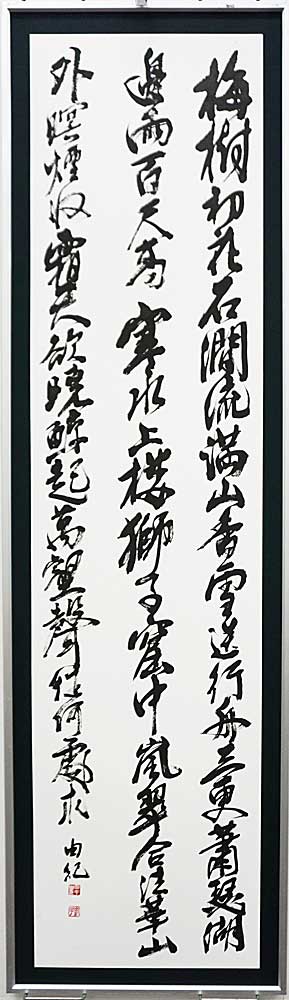 梅樹初花石澗流満山香雪送行舟三更蕭瑟湖
邊雨百尺高寒水上楼獅子窟中嵐翠合法華山
外暝煙收霜天欲曉酔起萬壑聲從何處求
由紀